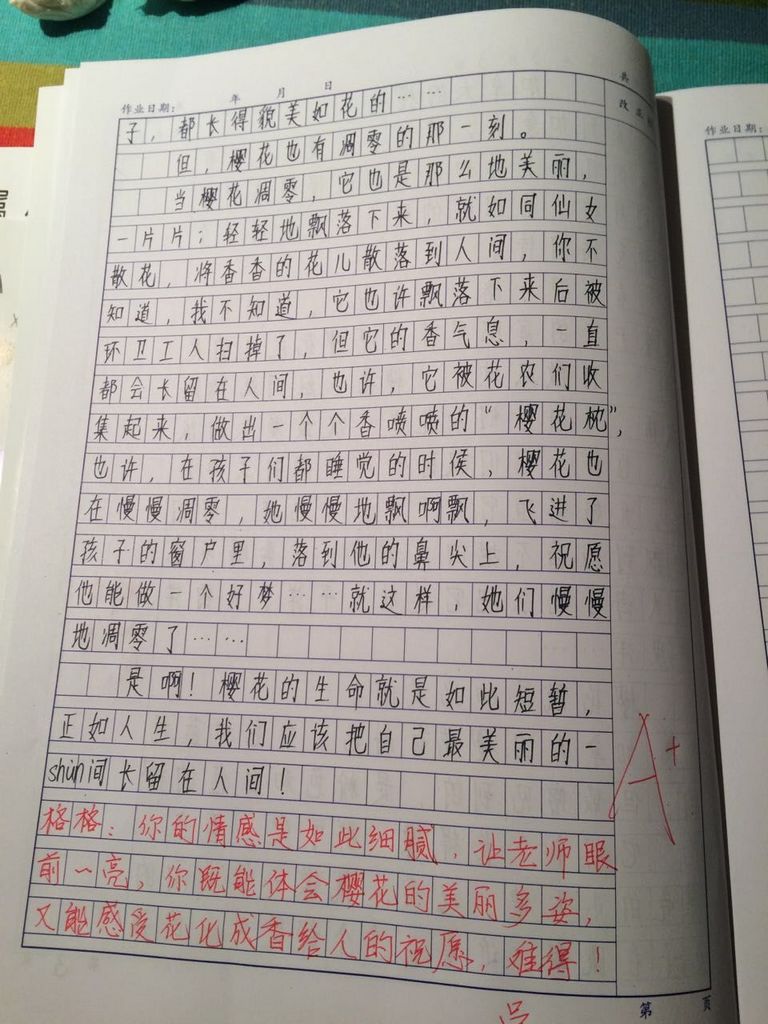 作业日期: 年 月 日
共
改
作业日期:
子，都长得貌美如花的……
但，樱花也有凋零的那一刻。
当樱花凋零，它也是那么地美丽，
一片片；轻轻地飘落下来，就如同仙女
散花，将香香的花儿散落到人间，你不
知道，我不知道，它也许飘落下来后被
环卫工人扫掉了，但它的香气息，一直
都会长留在人间，也许，它被花农们收
集起来，做出一个个香喷喷的“樱花枕”，
也许，在孩子们都睡觉的时侯，樱花也
在慢慢凋零，她慢慢地飘啊飘，飞进了
孩子的窗户里，落到他的鼻尖上，祝愿
他能做一个好梦……就这样，她们慢慢
地凋零了……
是啊！樱花的生命就是如此短暂，
正如人生，我们应该把自己最美丽的一
shùn间长留在人间！
A+
格格：你的情感是如此细腻，让老师眼
前一亮，你既能体会樱花的美丽多姿，
又能感受花化成香给人的祝愿，难得！
第 页